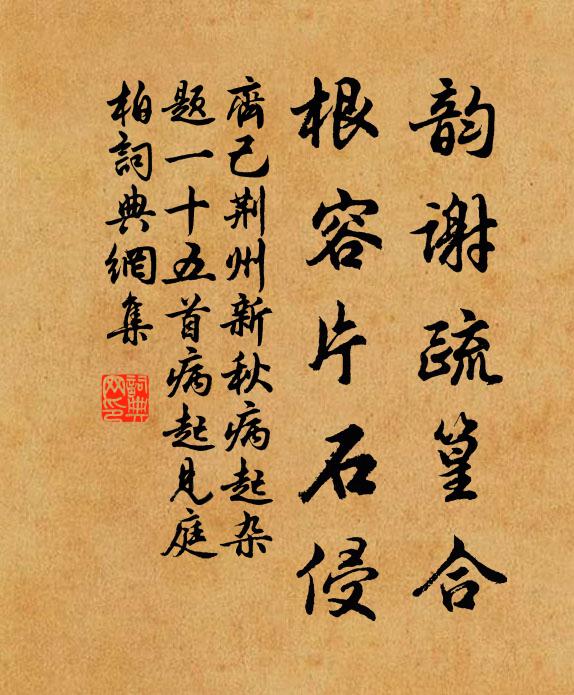 韵谢疏篁合
根容片石侵
齊己荆州新秋病起杂
题一十五首病起见庭
柏詞典網集
詞典網印